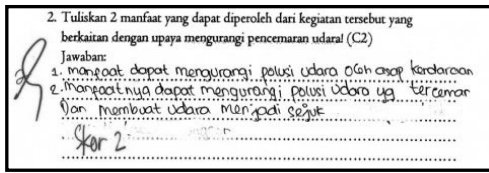 2. Tuliskan 2 manfaat yang dapat diperoleh dari kegiatan tersebut yang
berkaitan dengan upaya mengurangi pencemaran udara! (C2)
Jawaban:
1. manfaat dapat mengurangi polusi udara oleh asap kerdaraan
2. manfaatnya dapat mengurangi polusi udara yg tercemar
Dan membuat udara menjadi sejuk
Skor 2